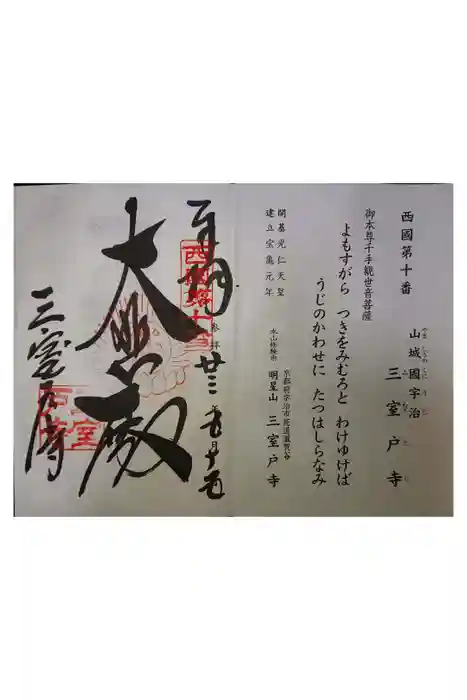 西國第十番
山城國宇治
やましろのくにうじ
三室戸寺
みむろとじ
御本尊千手観世音菩薩
よもすがら つきをみむろと わけゆけば
うじのかわせに たつはしらなみ
開基光仁天皇
建立宝亀元年
本山修験宗
京都府宇治市莵道滋賀谷
明星山 三室戸寺
奉拝
西國第十番
参拝 廿三年五月
大悲殿
三室戸寺